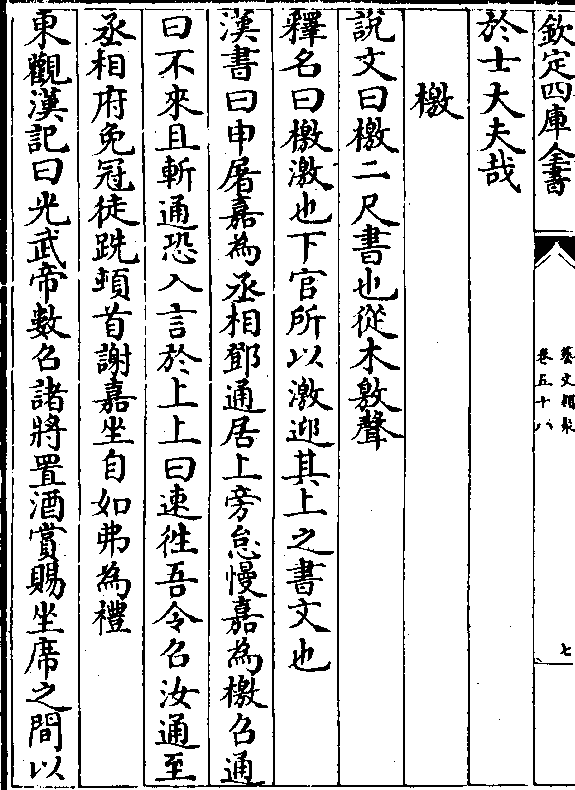 欽定四庫全書
藝文類聚
卷五十八
七
於士大夫哉
檄
說文曰檄二尺書也從木敫聲
釋名曰檄激也下官所以激迎其上之書文也
漢書曰申屠嘉為丞相鄧通居上旁怠慢嘉為檄召通
曰不來且斬通恐入言於上上曰速徃吾今召汝通至
丞相府免冠徒跣頓首謝嘉坐自如弗為禮
東觀漢記曰光武帝數召諸將置酒賞賜坐席之間以